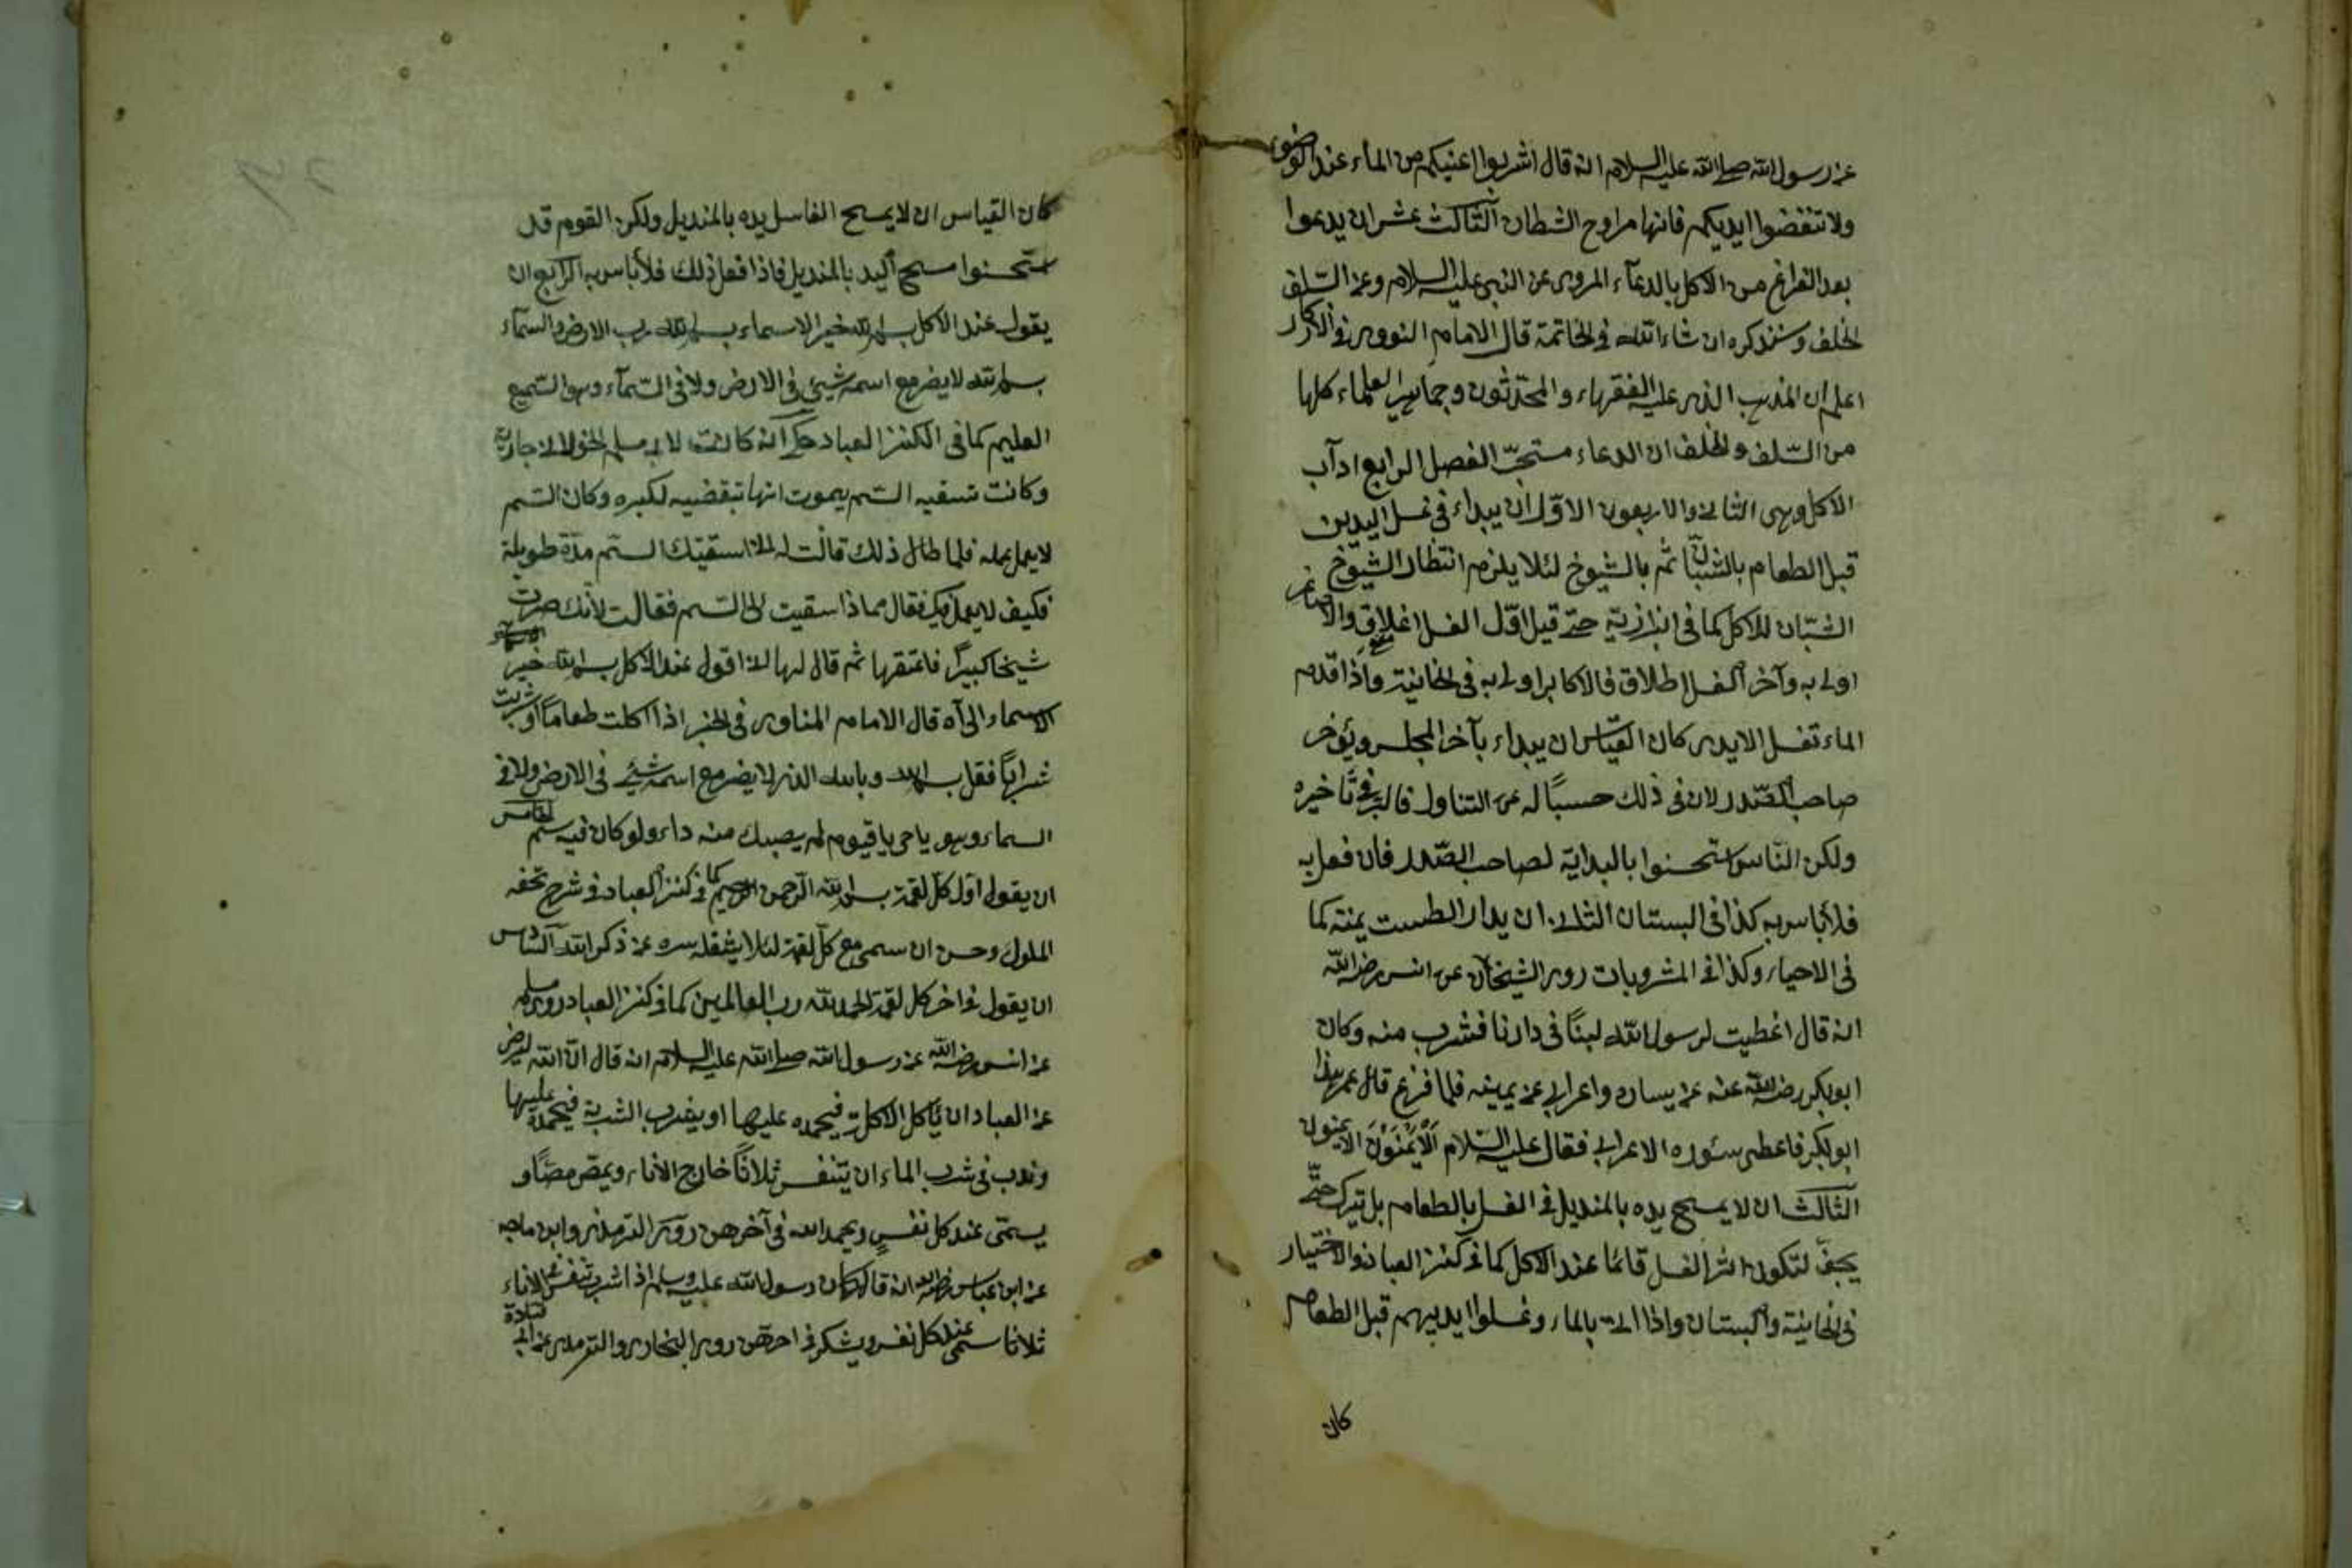 عن رسول الله صلى الله عليه السلام انه قال اشربوا اعينكم من الماء عند الوضوء
ولا تنفضوا ايديكم فانها مراوح الشطان الثالث عشر ان يدعوا
بعد الفراغ من الاكل بالدعآء المروى عن النبى عليه السلام وعن السّلف
الخلف وسنذكره ان شاء الله فى الخاتمة قال الامام النووى فى الاذكار
اعلم ان المذهب الذى عليه الفقهاء والمحدّثون وجماهير العلماء كلها
من السّلف والخلف ان الدعاء مستحبّ الفصل الرابع ادآب
الاكل وهى الثانى والاربعون الاوّل ان يبداء فى غسل اليدين
قبل الطعام بالشبّان ثم بالشيوخ لئلا يلزم انتظار الشيوخ
الشبّان للاكل كما فى البزازية حتى قيل اوّل الغسل اغلاق والاصاغر
اولى به وآخر الغسل اطلاق فالاكابر اولى به فى الخانية واذا قدم
الماء تغسل الايدى كان القياس ان يبداء بآخر المجلس ويؤخر
صاحب الصّدر لان فى ذلك حسبًا له عن التناول فالبر فى تأخيره
ولكن النّاس استحسنوا بالبداية لصاحب الصّدر فان فعل به
فلا بأس به كذا فى البستان الثانى ان يدار الطست يمنة كما
فى الاحياء وكذا فى المشروبات روى الشيخان عن انس رضى الله
انه قال اعطيت لرسول الله لبنًا فى دارنا فشرب منه وكان
ابوبكر رضى الله عنه عن يساره واعرابى عن يمينه فلما فرغ قال عمر هذا
ابوبكر فاعطى سئوره الاعرابى فقال عليه السّلام اَلْاَيْمَنُونَ الايمنون
الثالث ان لا يمسح يده بالمنديل فى الغسل بالطعام بل يترك حتّى
يجفّ لتكون اثر الغسل قائما عند الاكل كما فى كنز العباد والاختيار
فى الخانية والبستان واذا اتى بالماء وغسلوا ايديهم قبل الطعام
كان
كان القياس ان لا يمسح الغاسل يده بالمنديل ولكن القوم قد
استحسنوا مسح اليد بالمنديل فاذا فعل ذلك فلا بأس به الرابع ان
يقول عند الاكل بسم الله خير الاسماء بسم الله رب الارض والسمآء
بسم الله لا يضر مع اسمه شيئ فى الارض ولا فى السّمآء وهو السّميع
العليم كما فى الكنز العباد حكى انه كانت لابى مسلم الخولانى جارية
وكانت تسقيه السّم يموت انها تبغضيه لكبره وكان السّم
لا يعمل عمله فلما طال ذلك قالت له انا سقيتك السّم مدّة طويلة
فكيف لا يعمل فيك فقال مماذا سقيت لى السّم فقالت لأنّك صرت
شيخا كبيرًا فاعتقها ثم قال لها انا اقول عند الاكل بسم الله خير
الاسماء الى آه قال الامام المناوى فى الخبر اذا اكلت طعامًا او شربت
شرابًا فقل بسم الله وبالله الذى لا يضر مع اسمه شيئ فى الارض ولا فى
السماء وهو يا حى يا قيوم لم يصبك منه داء ولو كان فيه سم الخامس
ان يقول اوّل كلّ لقمة بسم الله الرّحمن الرحيم كما فى كنز العباد فى شرح تحفه
الملوك وحسن ان سمى مع كلّ لقمة لئلا يشغله سره عن ذكر الله السّادس
ان يقول فى اخر كل لقمة الحمد لله رب العالمين كما فى كنز العباد روى مسلم
عن انس رضى الله عن رسول الله صلى الله عليه السلام انه قال انّ الله ليرضى
عن العباد ان يأكل الاكلة فيحمده عليها او يشرب الشربة فيحمده عليها
وندب فى شرب الماء ان يتنفس ثلاثًا خارج الأناء ويمصّ مصّا و
يسمّى عند كل نفسٍ ويحمد الله فى آخرهن روى الترمذى وابن ماجه
عن ابن عباس رضى الله انه قال كان رسول الله عليه وسلم اذا شرب تنفس فى الاناء
ثلاثا سمى عند كل نفس ويشكر فى اخرهن روى البخارى والترمذى عن ابى قتادة